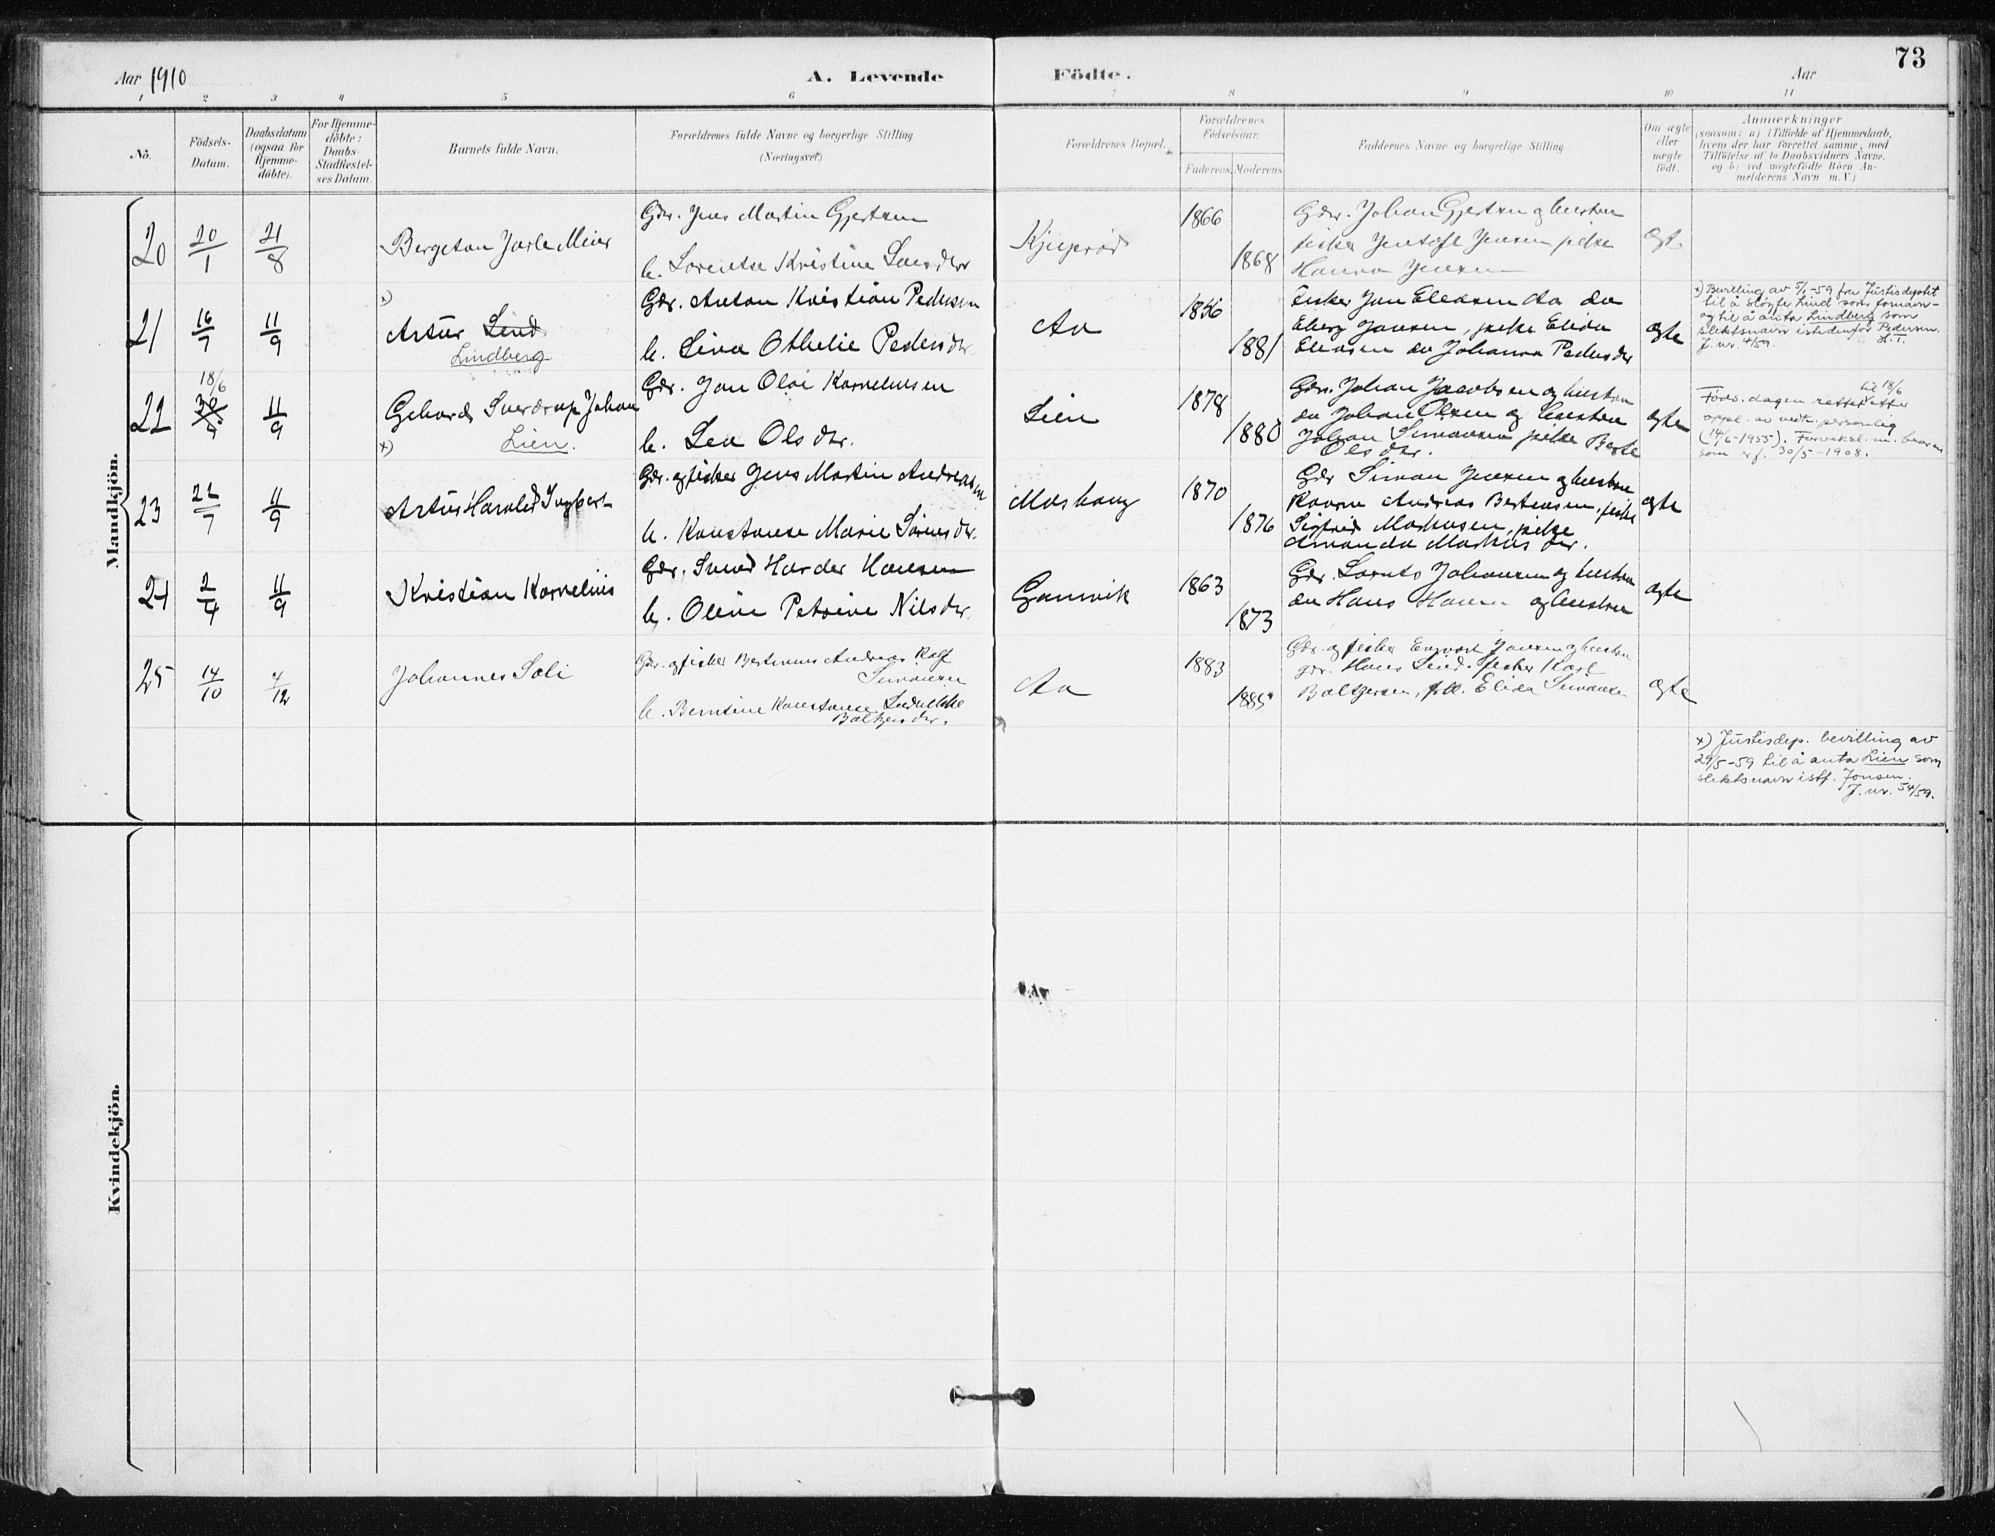 73
Aar 1910
A. Levende
Födte.
Aar
1 2 3 4 5 6 7 8 9 10 11
No.
Födsels-
Datum.
Daabsdatum
(ogsaa for
Hjemme-
döbte).
For Hjemme-
döbte:
Daabs-
Stadfæstel-
ses Datum.
Barnets fulde Navn.
Forældrenes fulde Navne og borgerlige Stilling.
(Næringsvei.)
Forældrenes Bopæl.
Forældrenes
Födselsaar.
Faderens.
Moderens.
Faddernes Navne og borgerlige Stilling.
Om ægte
eller
uægte
födt.
Anmærkninger
(saasom: a) i Tilfælde af Hjemmedaab,
hvem der har forrettet samme, med
Tilföielse af to Daabsvidners Navne,
og b) ved uægtefödte Börn An-
melderens Navn m. V.)
Mandkjön.
20
20/1
21/8
Bergeton Jarle Meier
Gdr. Jens Martin Gjertsen
h. Lorentse Kristine Larsdtr
1866
1868
Gdr. Johan Gjertsen og hustru
fisker Jentoft Jensen pike
Hanna Jensen
ægte
21
16/7
11/9
x)
Artur Lind
Lindberg
Gdr. Anton Kristian Pedersen
h. Lina Othelie Pedersdtr.
Aa
1856
1881
Fisker Jan Eliasen Aa do
Eberg Jansen, pike Elida
Eliasen do Johanna Pedersdtr
ægte
x) Bevilling av 5/1-59 fra Justisdeptet
til å sløyfe Lind som fornavn -
og til å anta Lindberg som
slektsnavn istedenfor Pedersen.
J. nr. 4/59.
22
18/6
11/9
Gehard Sverdrup Johan
x) Lien.
Gdr. Jon Olai Kornelius​sen
h. Lea Olsdtr.
Lien
1878
1880
Gdr. Johan Jacobsen og hustru
do Johan Olsen og hustru
Johan Simonsen pike Berte
Olsdtr.
ægte
til 18/6
Føds. dagen rettet etter
oppl. av vedk. personlig
(14/6-1955). Forveksl. m. broren
som er f. 30/5-1908.
23
22/7
11/9
Artur Harald Ingbert
Gdr. og fisker Jens Martin Andreasen
h. Konstanse Marie Sørensdtr.
Moshaug
1870
1876
Gdr Simon Jensen og hustru
Andreas Bertensen, fisk
Sigfrid Markusen, pike
Amanda Markusdtr.
ægte
24
2/4
11/9
Kristian Kornelius
Gdr. Svend Harder Hansen
h. Oline Petrine Nilsdtr.
Gamvik
1863
1873
Gdr. Lorents Johansen og hustru
do Hans Hansen og hustru
ægte
25
14/10
4/12
Johannes Soli
Gdr. og fisker Bertinus Andreas Rolf
Simonsen
h. Berntine Konstanse Ludvikke
Baltzersdtr.
Aa
1883
1885
Gdr. og fisker Jensen og hustru
gdr. Hans Lind. fisker Karl
Baltzersen, frk. Elida Simonsen
ægte
x) Justisdep. bevilling av
29/5-59 til å anta Lien som
slektsnavn istf. Jonsen.
J. nr. 54/59.
Kvindekjön.